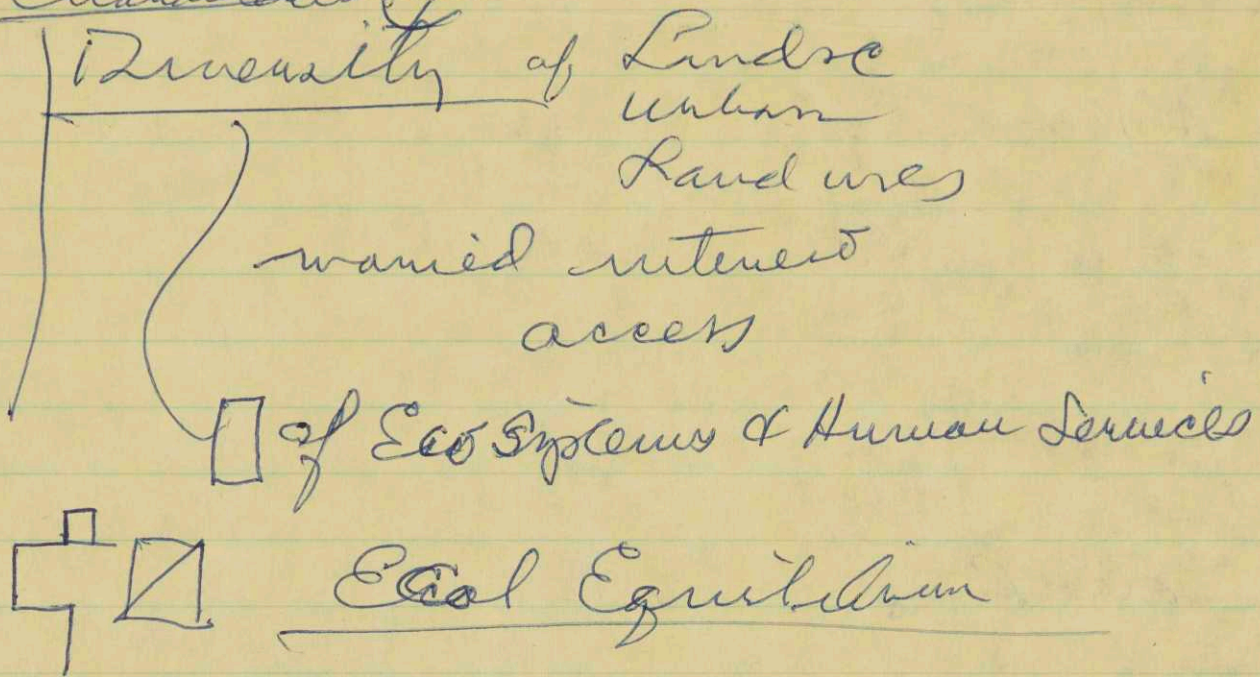 Diversity of Landsc
urban
Land uses
varied interest
access
of Eco Systems & Human Services
Ecol Equilibrium